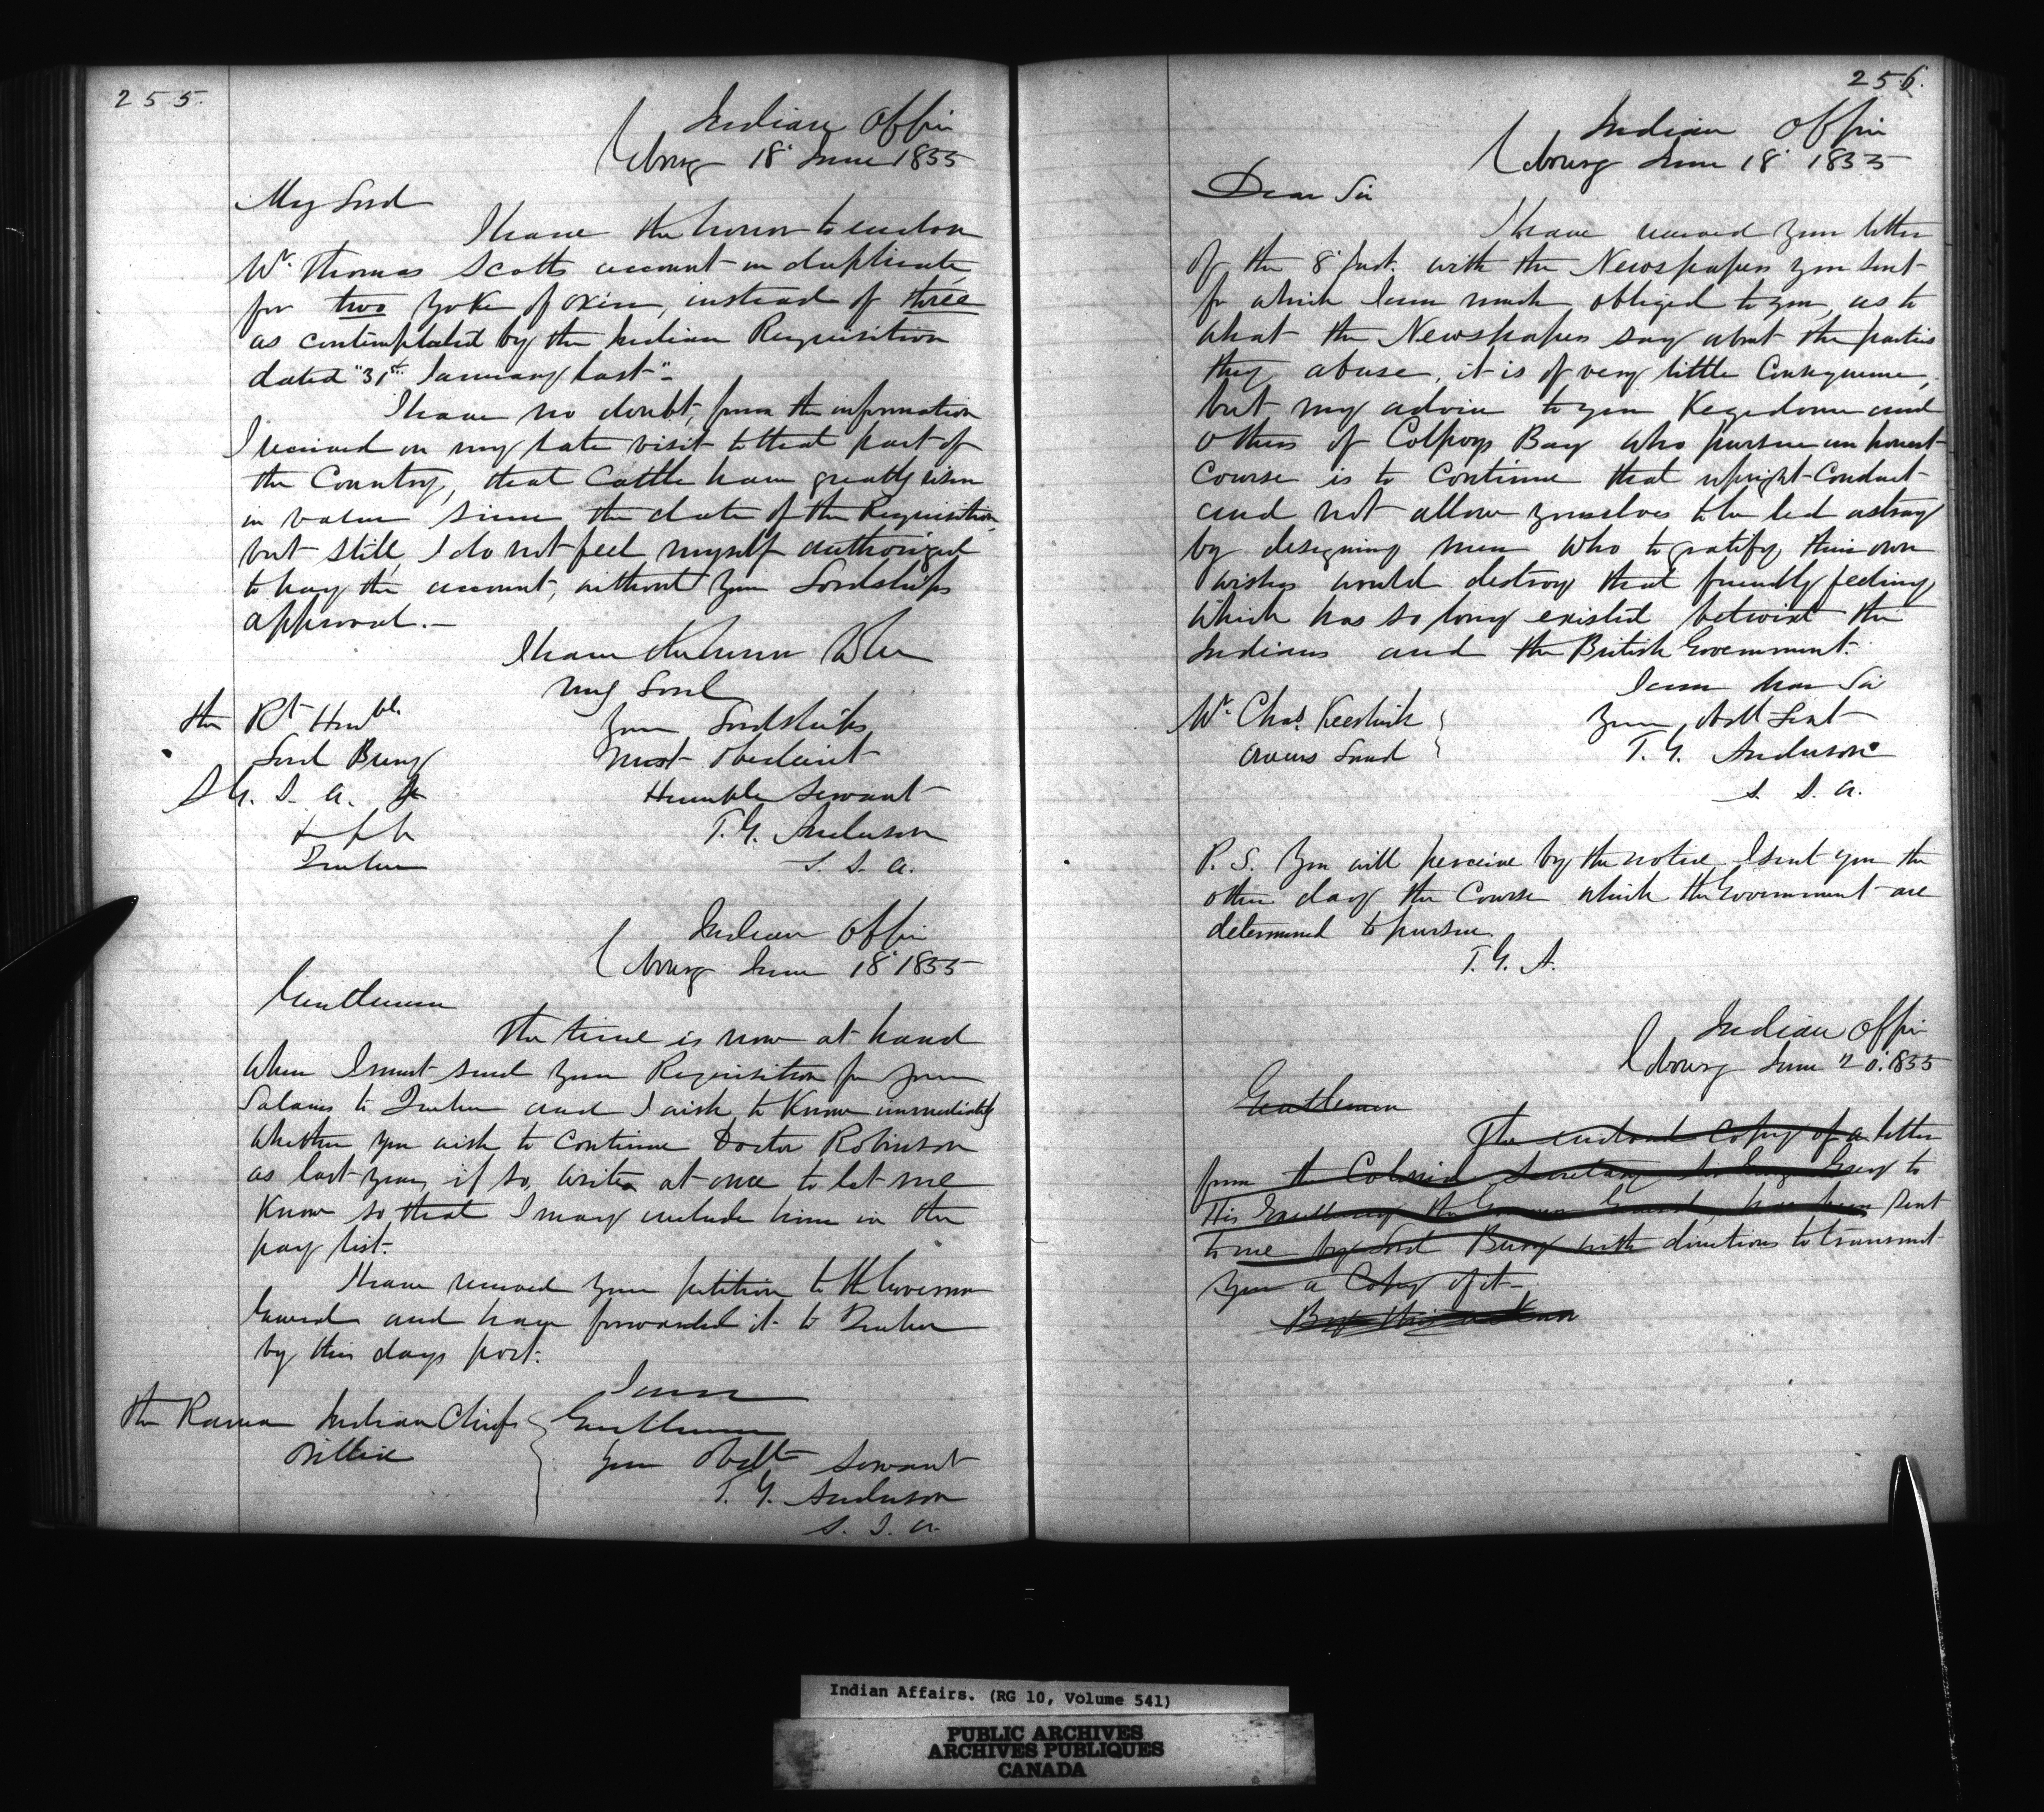 255.
Indian Office
Cobourg 18th June 1855
My Lord
I have the honor to enclose
Mr. Thomas Scotts account in duplicate,
for two Yoke of oxen, instead of three
as contemplated by the Indian Requisition
dated "31st January last"-
I have no doubt, from the information
I received on my late visit to that part of
the Country, that Cattle have greatly risen
in value since the date of the Requisition,
but still, I do not feel myself authorized
to pay the account, without Your Lordships
approval.-
I have the honor to be
My Lord
Your Lordships
Most Obedient
Humble Servant
T. G. Anderson
S. I. A.
The Rt Honble.
Lord Bury
S. G. I. A. &
& &c &c
Quebec
Indian Office
Cobourg June 18th 1855
Gentlemen
The time is now at hand
When I must send Your Requisition for your
Salaries to Quebec and I wish to Know immediately
Whether you wish to Continue Doctor Robinson
as last year, if so, write at once to let me
Know so that I may include him in the
pay list.
I have received Your petition to the Governor
General and have forwarded it to Quebec
by this days post.
I am
Gentlemen
Your Obdt Servant
T. G. Anderson
S. I. A.
The Rama Indian Chiefs
Orillia
256.
Indian Office
Cobourg June 18th 1855
Dear Sir
I have received Your letter
of the 8th Inst. with the Newspapers you sent
for which I am much obliged to you, as to
what the Newspapers say about the parties
they abuse, it is of very little Consequence,
but my advice to you Kegedonce and
others of Colpoys Bay who pursue an honest
Course is to Continue that upright Conduct
and not allow yourselves to be led astray
by designing men who to gratify their own
wishes would destroy that friendly feeling
which has so long existed betwixt the
Indians and the British Government.
I am Dear Sir
Your Obdt Servt
T. G. Anderson
S. I. A.
Mr. Chas. Keeshick
Owens Sound
P. S. You will perceive by the notice I sent you the
other day the Course which the Government are
determined to pursue.
T. G. A.
Indian Office
Cobourg June 20th 1855
Gentlemen
The enclosed Copy of a letter
from the Colonial Secretary Sir George Grey to
His Excellency the Governor General, has been sent
to me by Lord Bury with directions to transmit
you a Copy of it-
By this
Indian Affairs. (RG 10, Volume 541)
PUBLIC ARCHIVES
ARCHIVES PUBLIQUES
CANADA